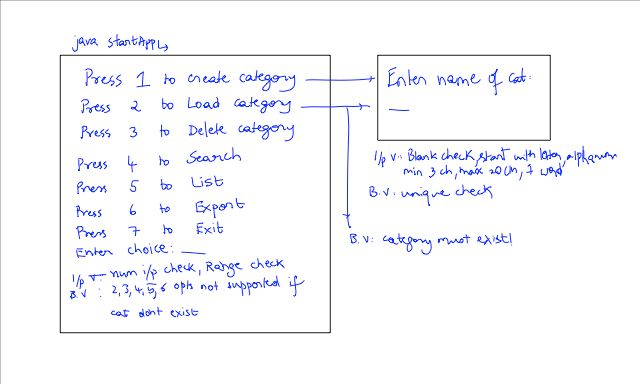 java startApp↳
Press 1 to create category
Press 2 to Load category
Press 3 to Delete category
Press 4 to Search
Press 5 to List
Press 6 to Export
Press 7 to Exit
Enter choice: __
I/p v- num i/p check, Range check
B.V : 2,3,4,5,6 opts not supported if
cat dont exist
Enter name of cat:
__
I/p v:- Blank check, start with letter, alphanum
min 3 ch, max 20 ch, 1 word
B.V: unique check
B.V: category must exist!